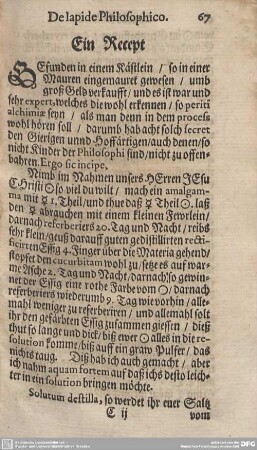 De lapide Philosophico. 67
Ein Recept
GEfunden in einem Kästlein / so in einer
Mauren eingemauret gewesen / umb
groß Geld verkaufft / und es ist war und
sehr expert, welches die wohl erkennen / so periti
alchimiæ seyn / als man denn in dem process
wohl hören soll / darumb hab acht solch secret
den Gierigen unnd Hoffärtigen / auch denen / so
nicht Kinder der Philosophi sind / nicht zu offen-
bahren. Ergo sic incipe.
Nimb im Nahmen unsers HErren JEsu
Christi ☉ so viel du wilt / mach ein amalgam-
ma mit ☿ 1. Theil / und thue daß ☿ Theil ☉, laß
den ☿ abrauchen mit einem kleinen Fewrlein /
darnach referberiers 20. Tag und Nacht / reibs
sehr klein / geuß darauff guten gedistillirten recti-
ficirten Essig 4. Finger über die Materia gehend /
stopfset den cucurbitam wohl zu / setz es auf war-
me Asche 2. Tag und Nacht / darnach so gewin-
net der Essig eine rothe Farbe vom ☉ / darnach
referberiers wiederumb 9. Tag wie vorhin / alle-
mahl weniger zu referberiren / und allemahl solt
ihr den gefärbten Essig zusammen giessen / dieß
thut so lange und dick / biß ewer ☉ alles in die re-
solution komme / biß auff ein graw Pulfer / das
nichts taug. Diß hab ich auch gemacht / aber
ich nahm aquam fortem auf daß ichs desto leich-
ter in ein solution bringen möchte.
Solutum destilla, so werdet ihr euer Saltz
C ij vom